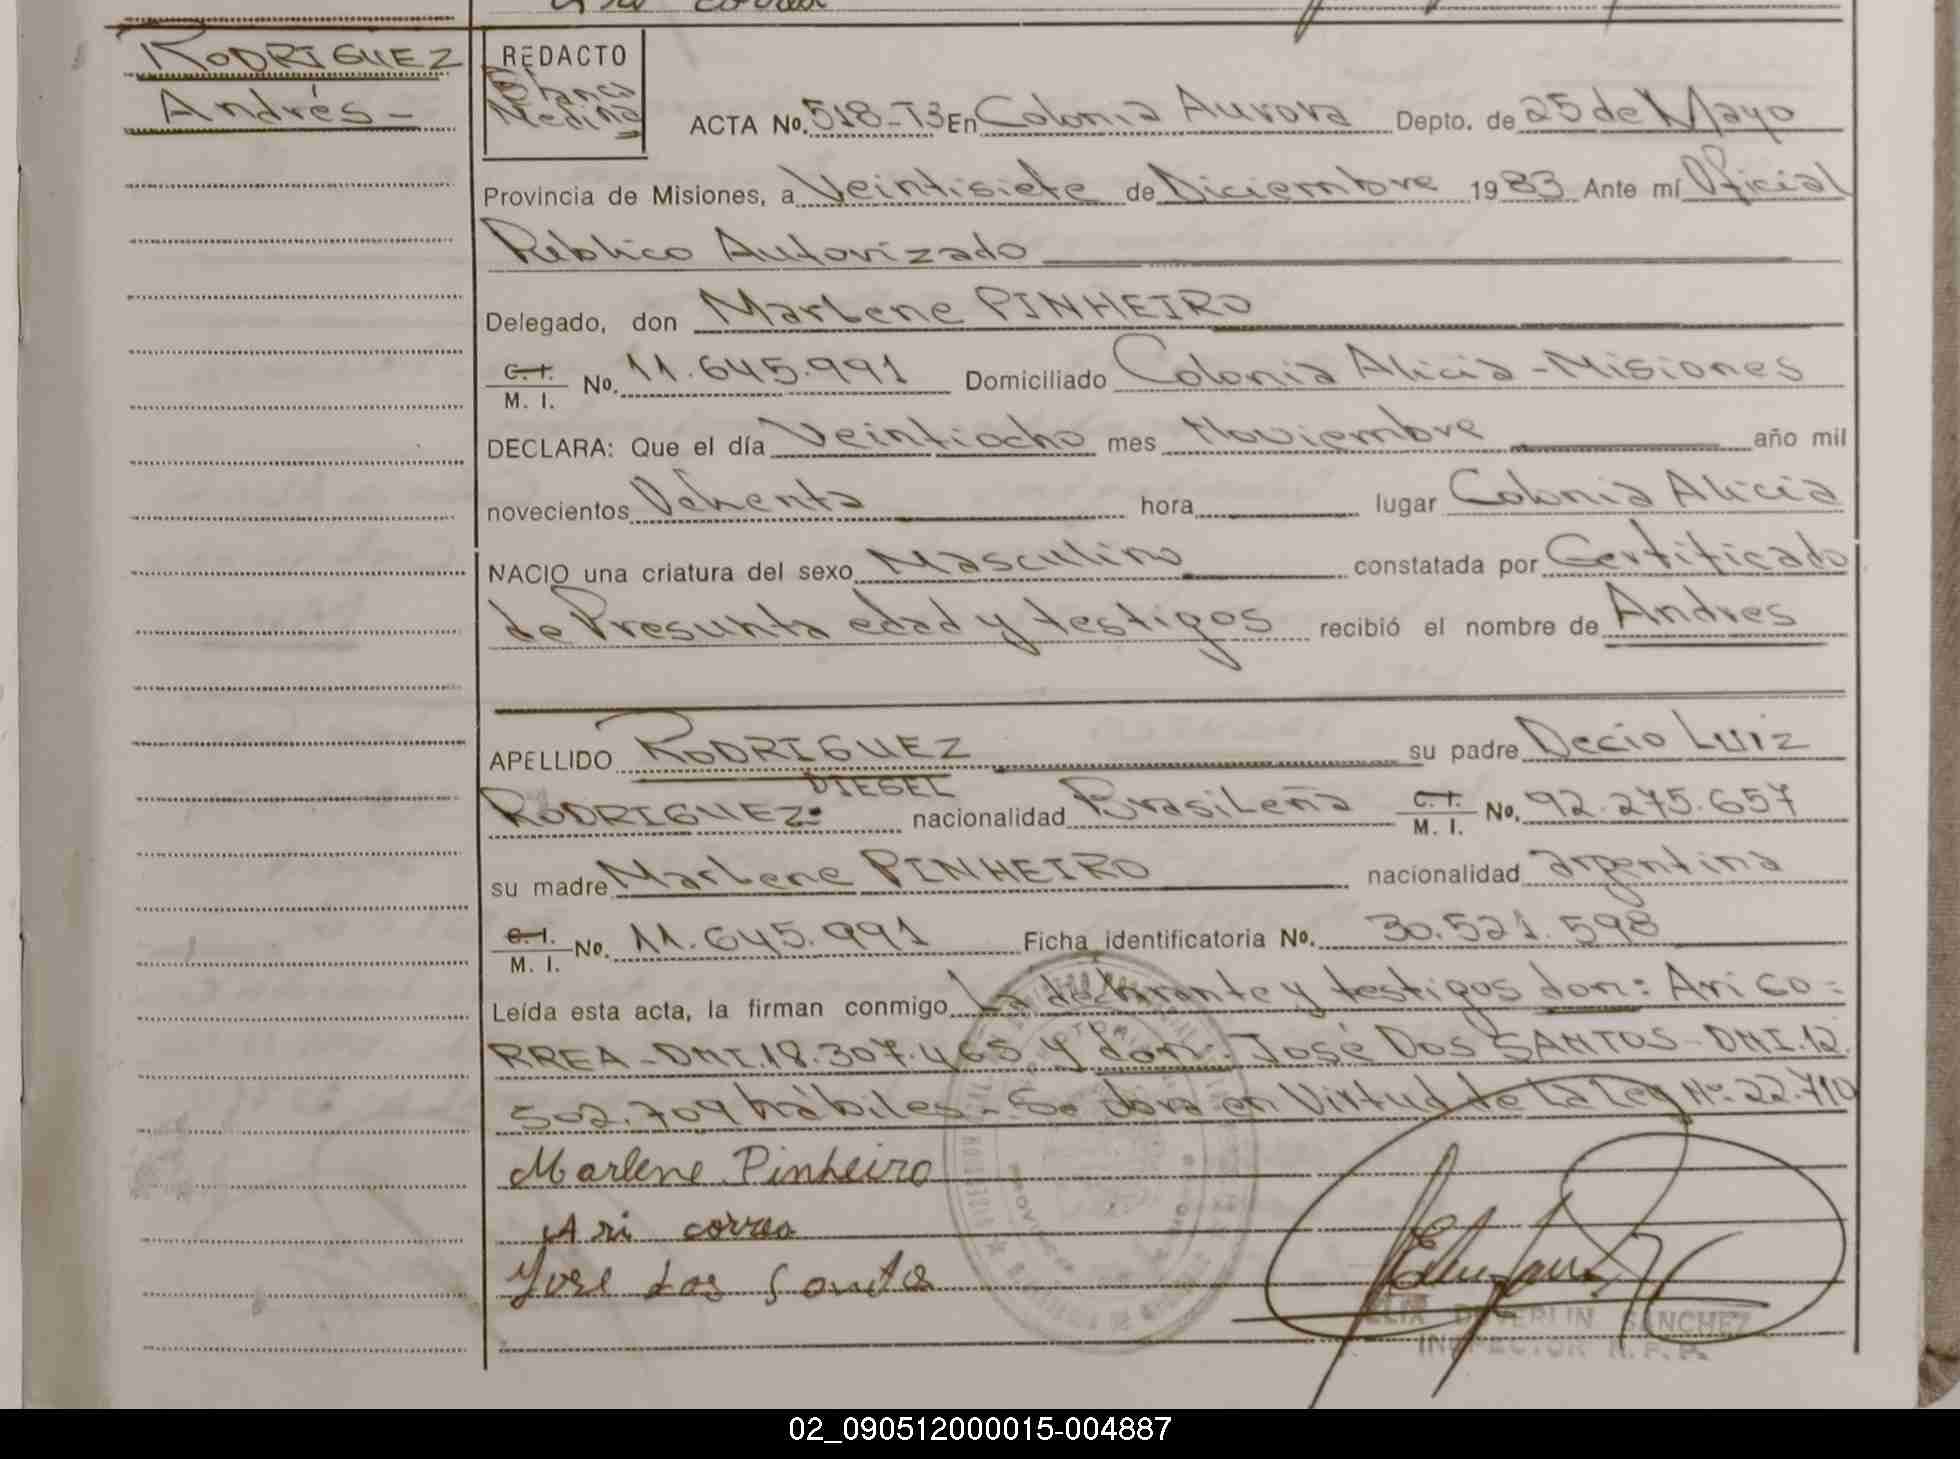 RODRIGUEZ
Andrés-
REDACTO
Blanca
Medina
ACTA No. 518-T3 En Colonia Aurora Depto. de 25 de Mayo
Provincia de Misiones, a Veintisiete de Diciembre 1983 Ante mí Oficial
Público Autorizado
Delegado, don Marlene PINHEIRO
C. I. M. I. No. 11.645.991 Domiciliado Colonia Alicia-Misiones
DECLARA: Que el día Veintiocho mes Noviembre año mil
novecientos Ochenta hora lugar Colonia Alicia
NACIO una criatura del sexo Masculino constatada por Certificado
de Presunta edad y testigos recibió el nombre de Andres
APELLIDO RODRIGUEZ su padre Decio Luiz
DIESEL
RODRIGUEZ: nacionalidad Brasileña C. I. M. I. No. 92.275.657
su madre Marlene PINHEIRO nacionalidad argentina
C. I. M. I. No. 11.645.991 Ficha identificatoria No. 30.521.598
Leída esta acta, la firman conmigo La declarante y testigos don: Ari CO=
RREA-DNI.18.307.465 y don: José Dos SANTOS-DNI.12.
502.709 hábiles- Se obra en Virtud de La Ley Nº: 22.710
Marlene Pinheiro
Ari correa
Jose dos Santos
SANCHEZ
INSPECTOR R.P.P.
02_090512000015-004887